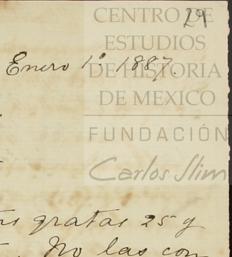 29
CENTRO DE
ESTUDIOS
Enero 1º 1887.
DE HISTORIA
DE MEXICO
FUNDACIÓN
Carlos Slim
gratas 25 y
No las con